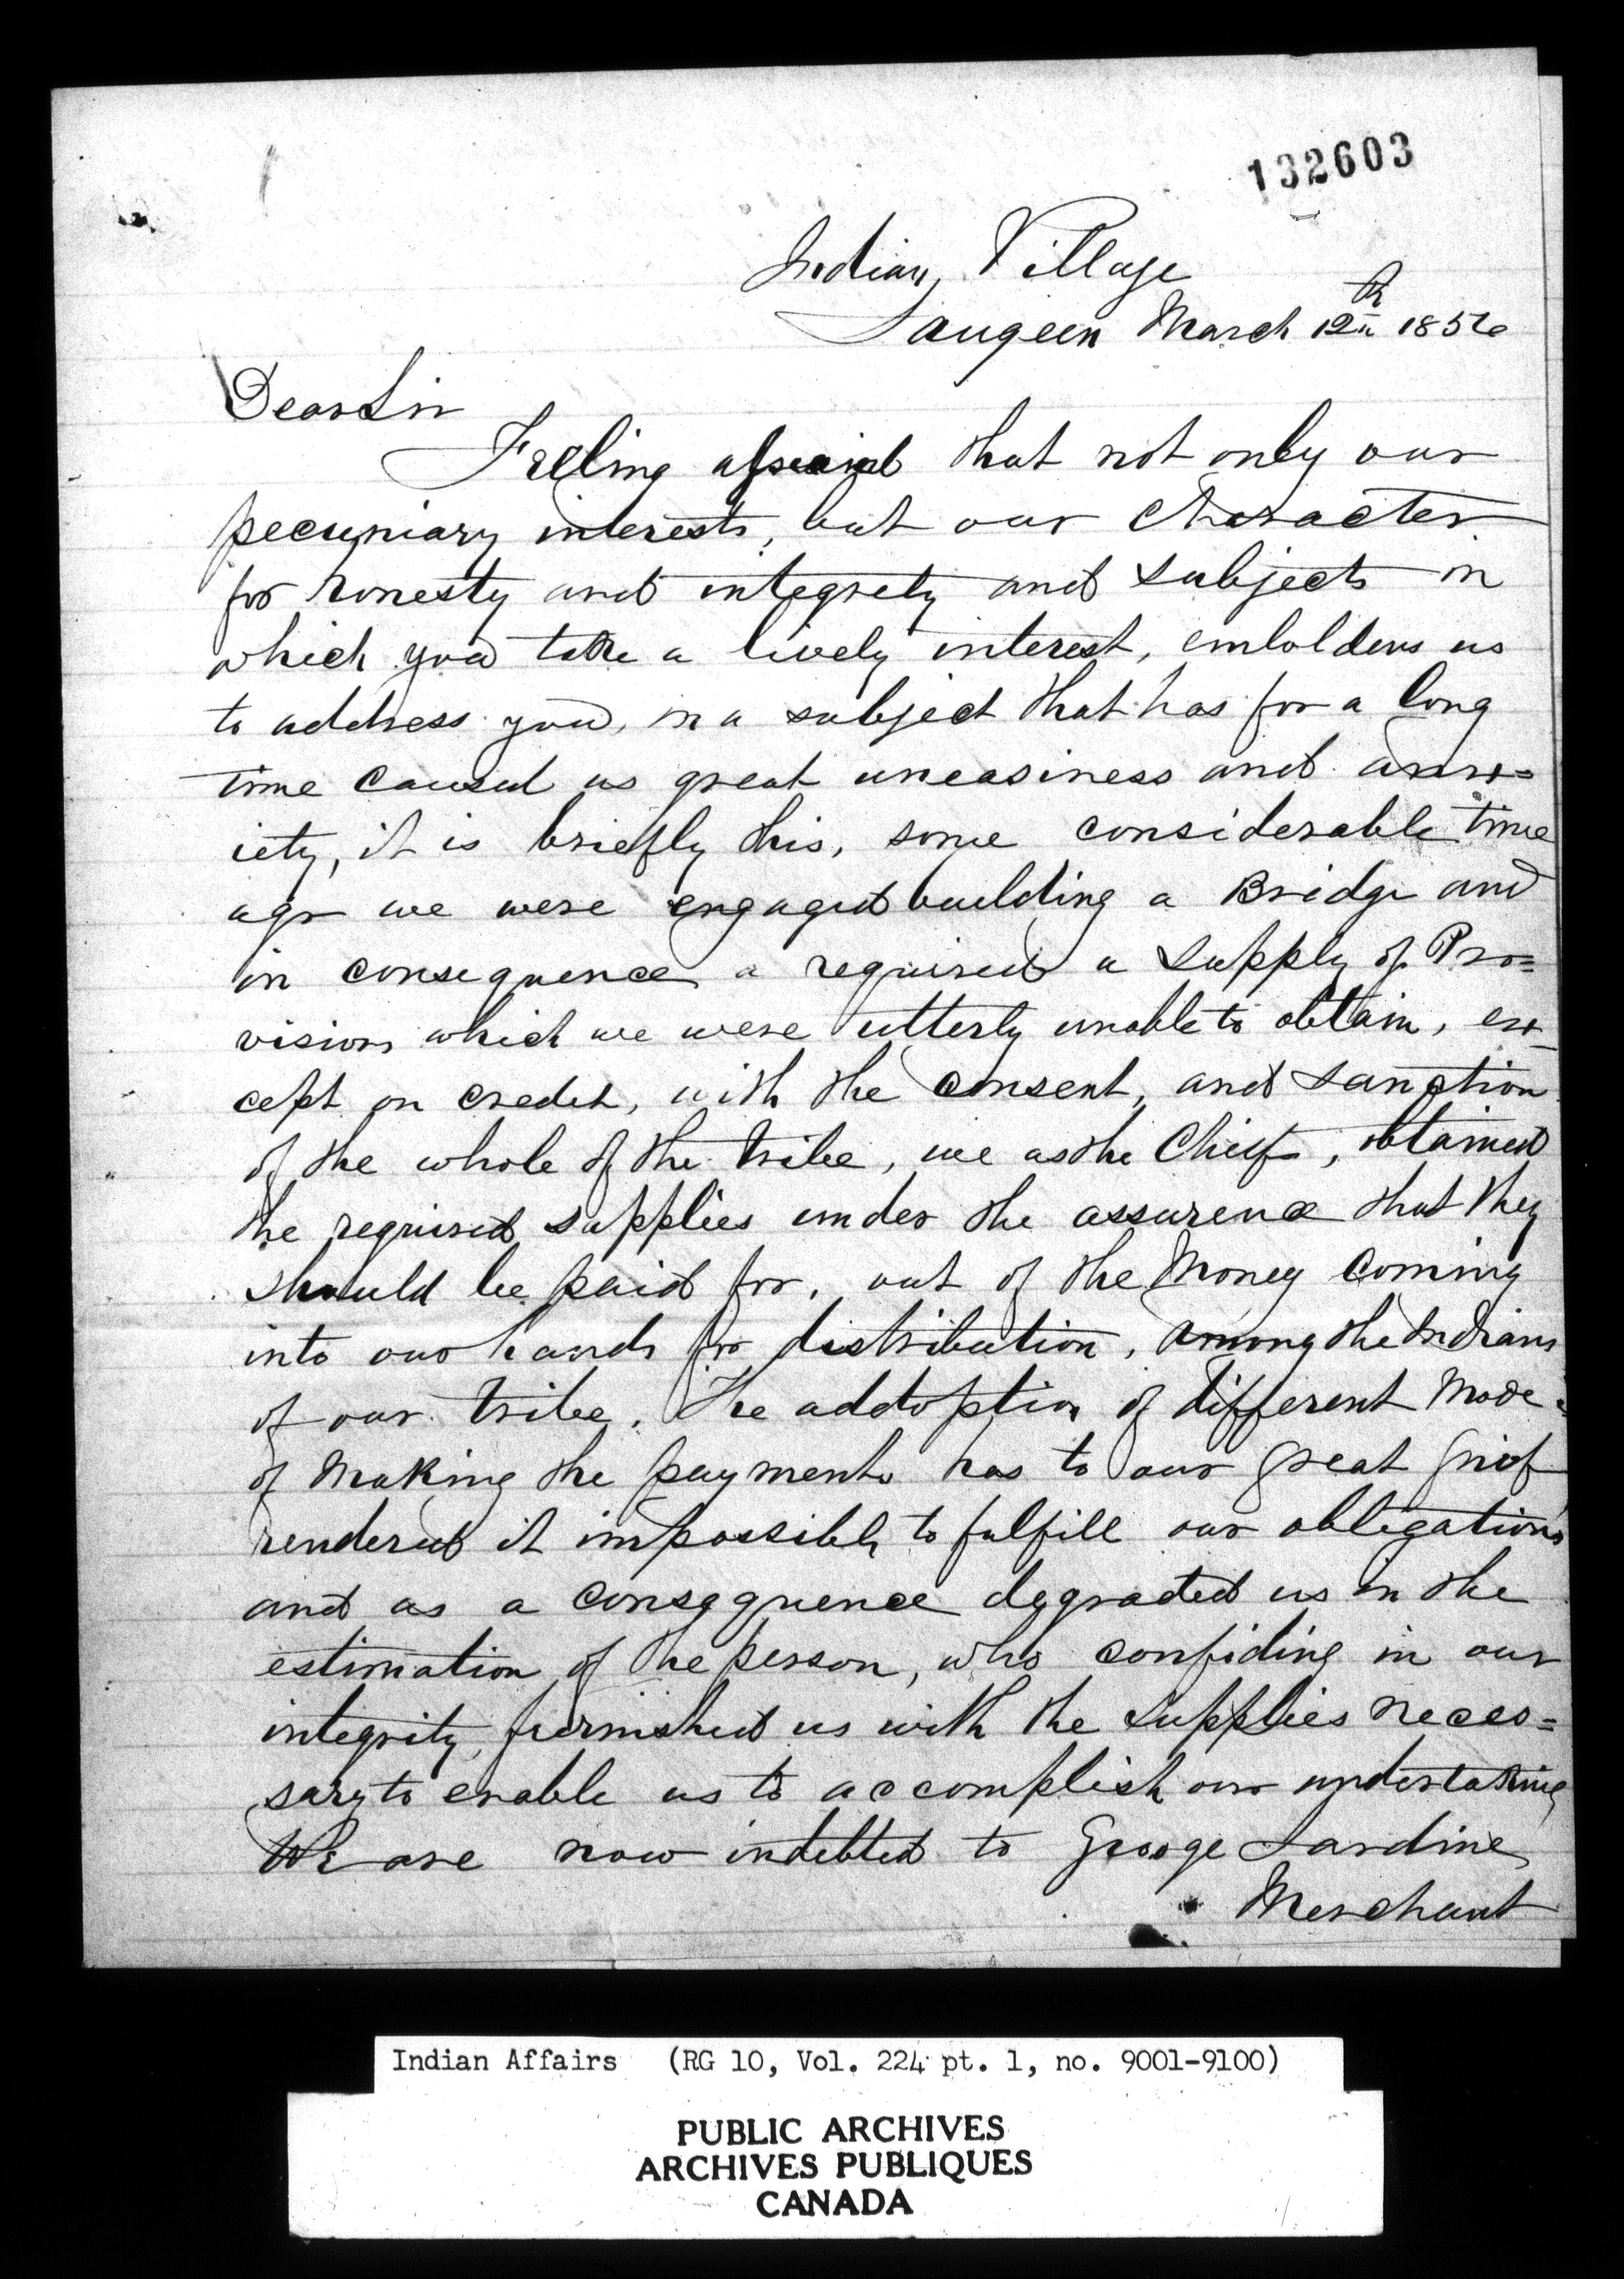 132603
Indian Village
Saugeen March 12th 1856
Dear Sir
Feeling afraid that not only our
pecuniary interests, but our Character
for honesty and integrety and subjects in
which you take a lively interest, emboldens us
to address you, in a subject that has for a long
time caused us great uneasiness and anx=
iety, it is briefly this, some considerable time
ago we were engaged building a Bridge and
in consequence a required a supply of Pro=
visions which we were utterly unable to obtain, ex=
cept on credit, with the consent, and sanction
of the whole of the tribe, we as the Chiefs, obtained
the required supplies under the assurence that they
should be paid for, out of the Money Coming
into our hands for distribution, among the Indians
of our tribe. The addoption of different Mode
of Making the payments has to our great grief
rendered it impossible to fulfill our obligations
and as a consequence degraded us in the
estimation of the person, who confiding in our
integrity, furnished us with the supplies neces=
sary to enable us to accomplish our undertaking
We are now indebted to George Jardine
Merchant
Indian Affairs (RG 10, Vol. 224 pt. 1, no. 9001-9100)
PUBLIC ARCHIVES
ARCHIVES PUBLIQUES
CANADA